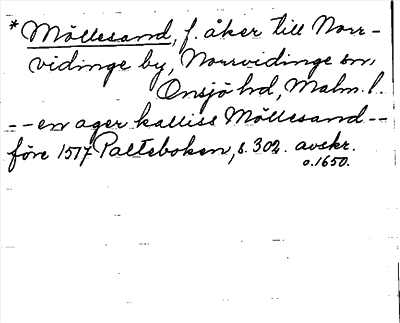 *Möllesand, f. åker till Norr-
vidinge by, Norrvidinge sn,
Onsjö hd, Malm. l.
-- en ager kalliss Möllesand --
före 1517 Palteboken, s. 302. avskr.
o. 1650.